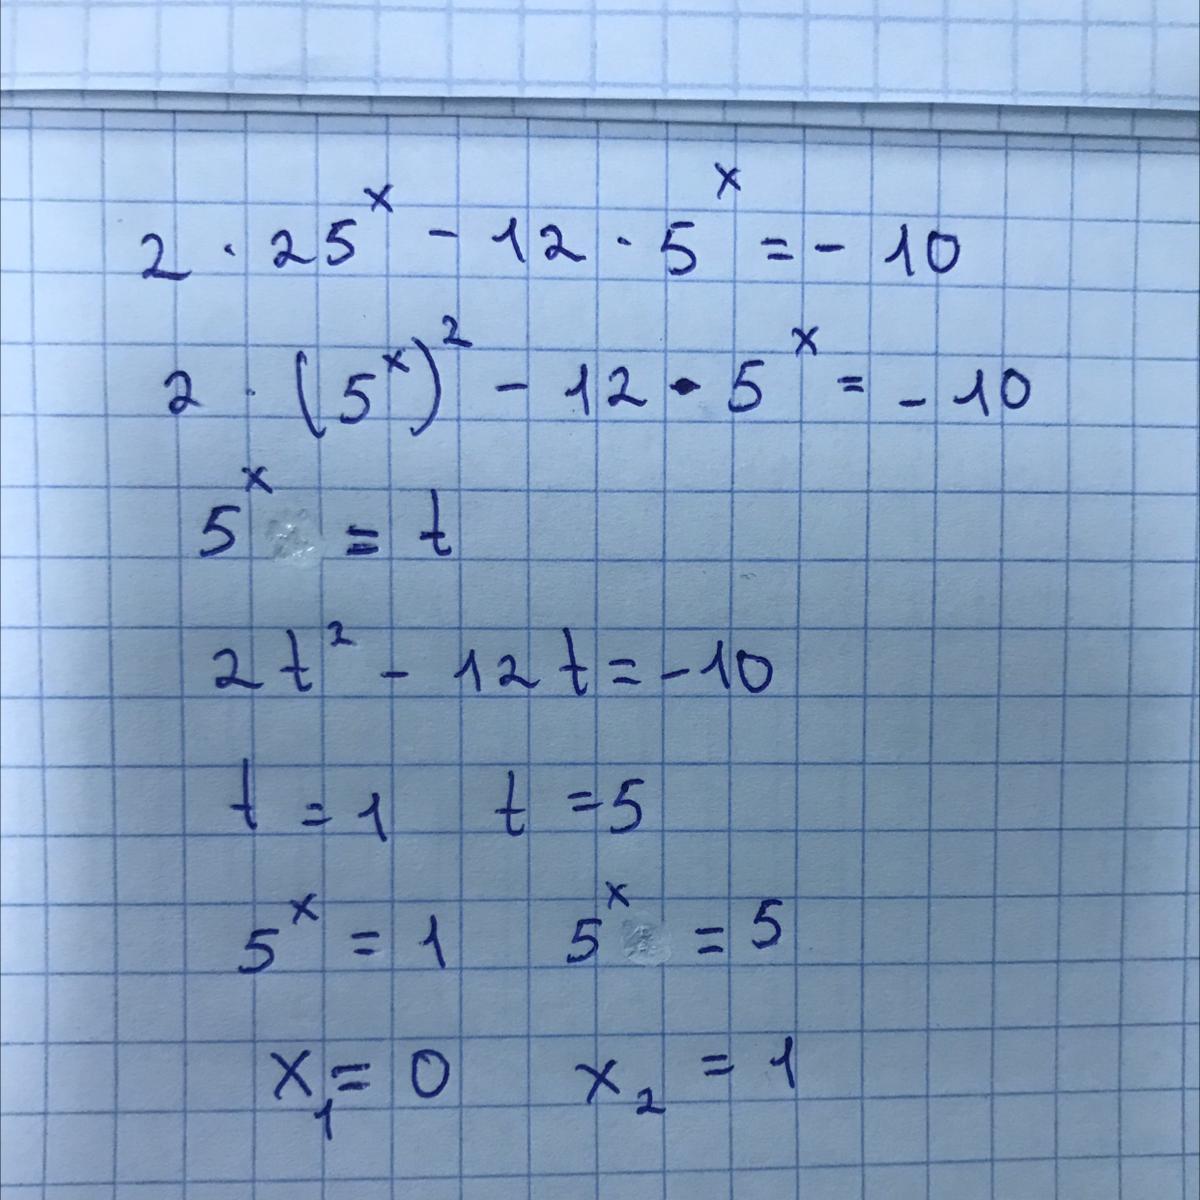 2 · 25^x - 12 · 5^x = - 10
2 · (5^x)^2 - 12 · 5^x = - 10
5^x = t
2t^2 - 12t = -10
t = 1 t = 5
5^x = 1 5^x = 5
x_1 = 0 x_2 = 1